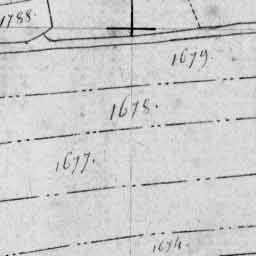 1788.
1679.
1678.
1677.
1674.